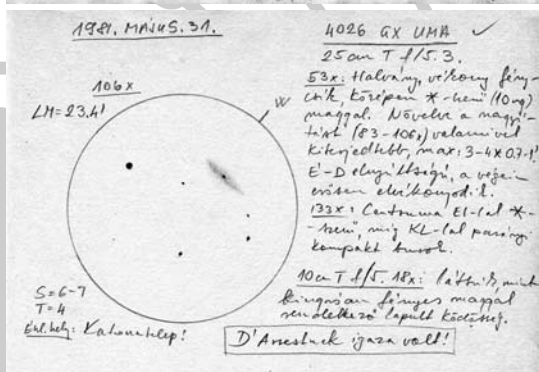 1981. MÁJUS. 31.
106x
LM=23.4'
W
S=6-7
T=4
Észl. hely: Katonatelep!
4026 GX UMA ✓
25 cm T f/5.3.
53x: Halvány, vékony fény-
csík, közepén *-szerű (10 mg)
maggal. Növelve a nagyí-
tást (83-106x) valamivel
kiterjedtebb, max: 3-4x0.7-1'.
É-D elnyúltságú, a végein
erősen elvékonyodik.
133x: Centruma El-lal *-
-szerű, míg KL-lal parányi
kompakt
10 cm T f/5. 18x: látszik, mint
fényes maggal
rendelkező lapult ködösség.
D'Arrestnek igaza volt!